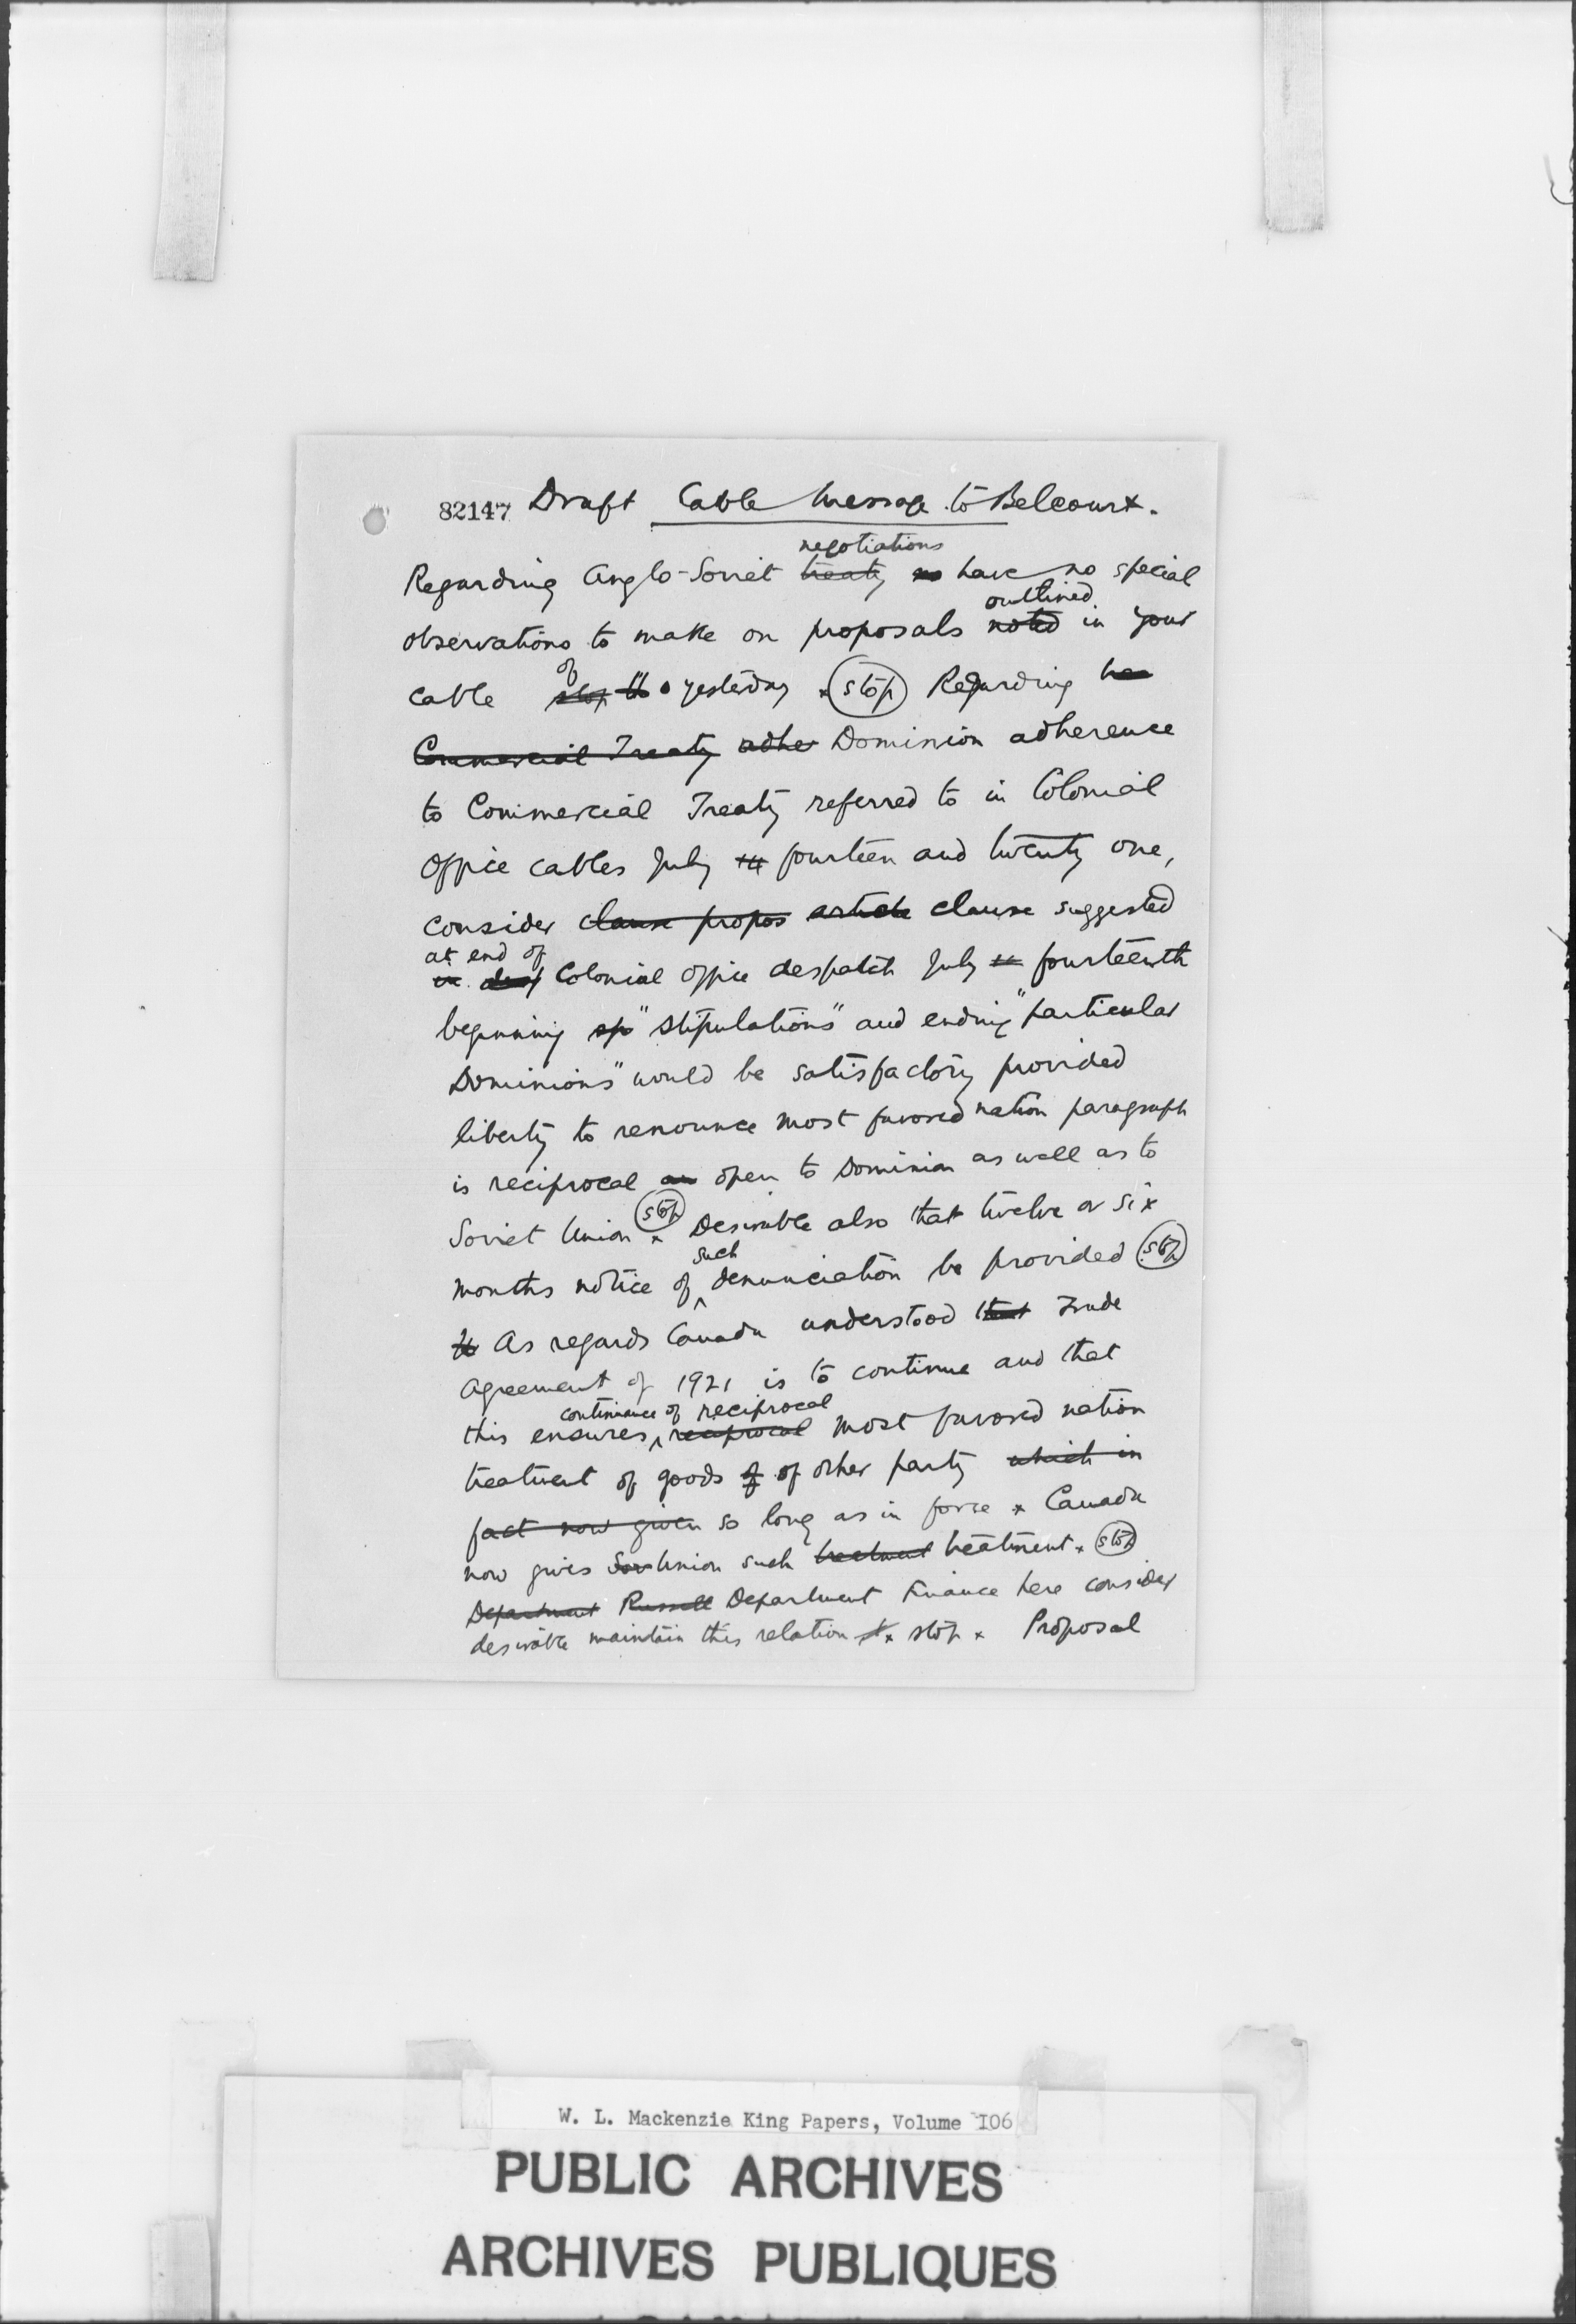 82147 Draft Cable Message to Belcourt.
negotiations
Regarding Anglo-Soviet treaty no have no special
outlined
observations to make on proposals noted in your
of
cable stop yesterday x stop Regarding
Commercial Treaty adhe Dominion adherence
to Commercial Treaty referred to in Colonial
Office cables July 14 fourteen and twenty one,
consider clause propos article clause suggested
at end of
in Colonial Office despatch July fourteenth
beginning "stipulations" and ending "particular
Dominions" would be satisfactory provided
liberty to renounce most favored nation paragraph
is reciprocal open to Dominion as well as to
stop
Soviet Union x Desirable also that twelve or six
such
months notice of ^ denunciation be provided stop
As regards Canada understood that Trade
Agreement of 1921 is to continue and that
continuance of reciprocal
this ensures ^ reciprocal most favored nation
treatment of goods of of other party which in
fact now given so long as in force x Canada
now gives Sov Union such treatment treatment x stop
Department Russell Department Finance here consider
desirable maintain this relation x stop x Proposal
W. L. Mackenzie King Papers, Volume 106
PUBLIC ARCHIVES
ARCHIVES PUBLIQUES